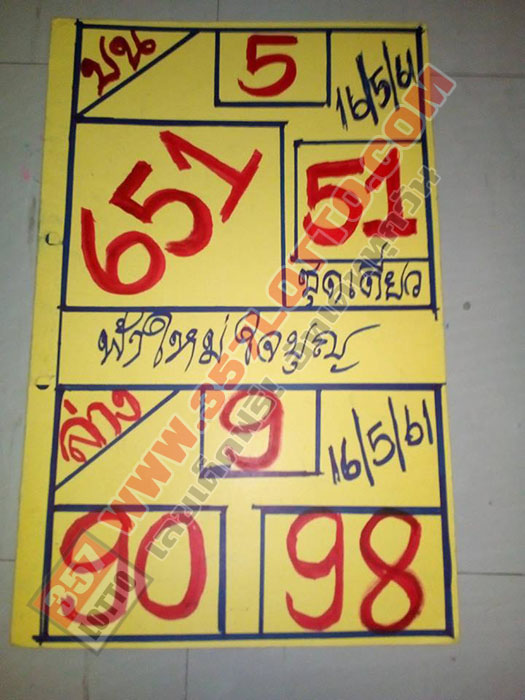 บน
5
16/5/61
651
51
ชุดเดียว
ฟ้าใหม่ ใจบุญ
ล่าง
9
16/5/61
90
98
WWW.357LOTTO.COM
357
LOTTO